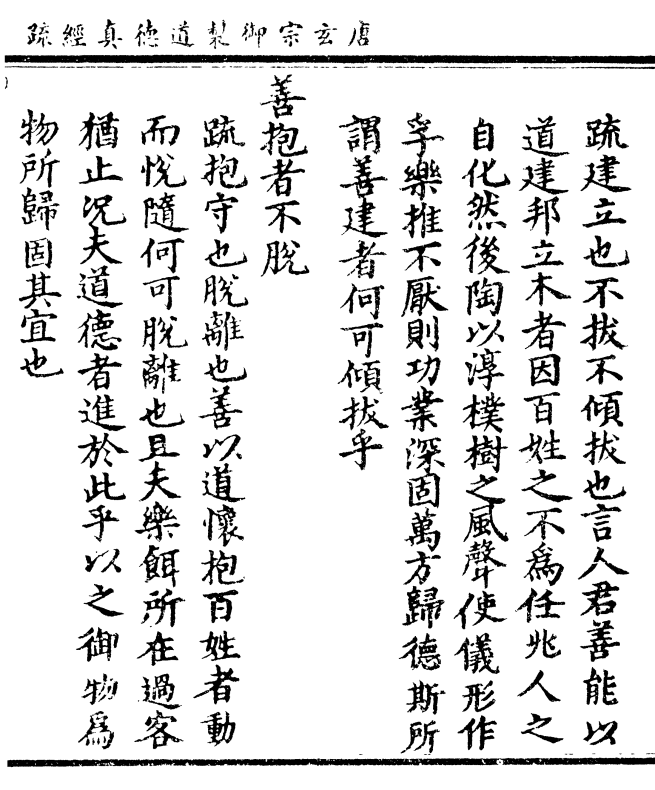 唐玄宗御製道德真經疏
疏建立也不拔不傾拔也言人君善能以
道建邦立本者因百姓之不為任兆人之
自化然後陶以淳樸樹之風聲使儀形作
孚樂推不厭則功業深固萬方歸德斯所
謂善建者何可傾拔乎
善抱者不脫
疏抱守也脫離也善以道懷抱百姓者動
而悅隨何可脫離也且夫樂餌所在過客
猶止況夫道德者進於此乎以之御物為
物所歸固其宜也